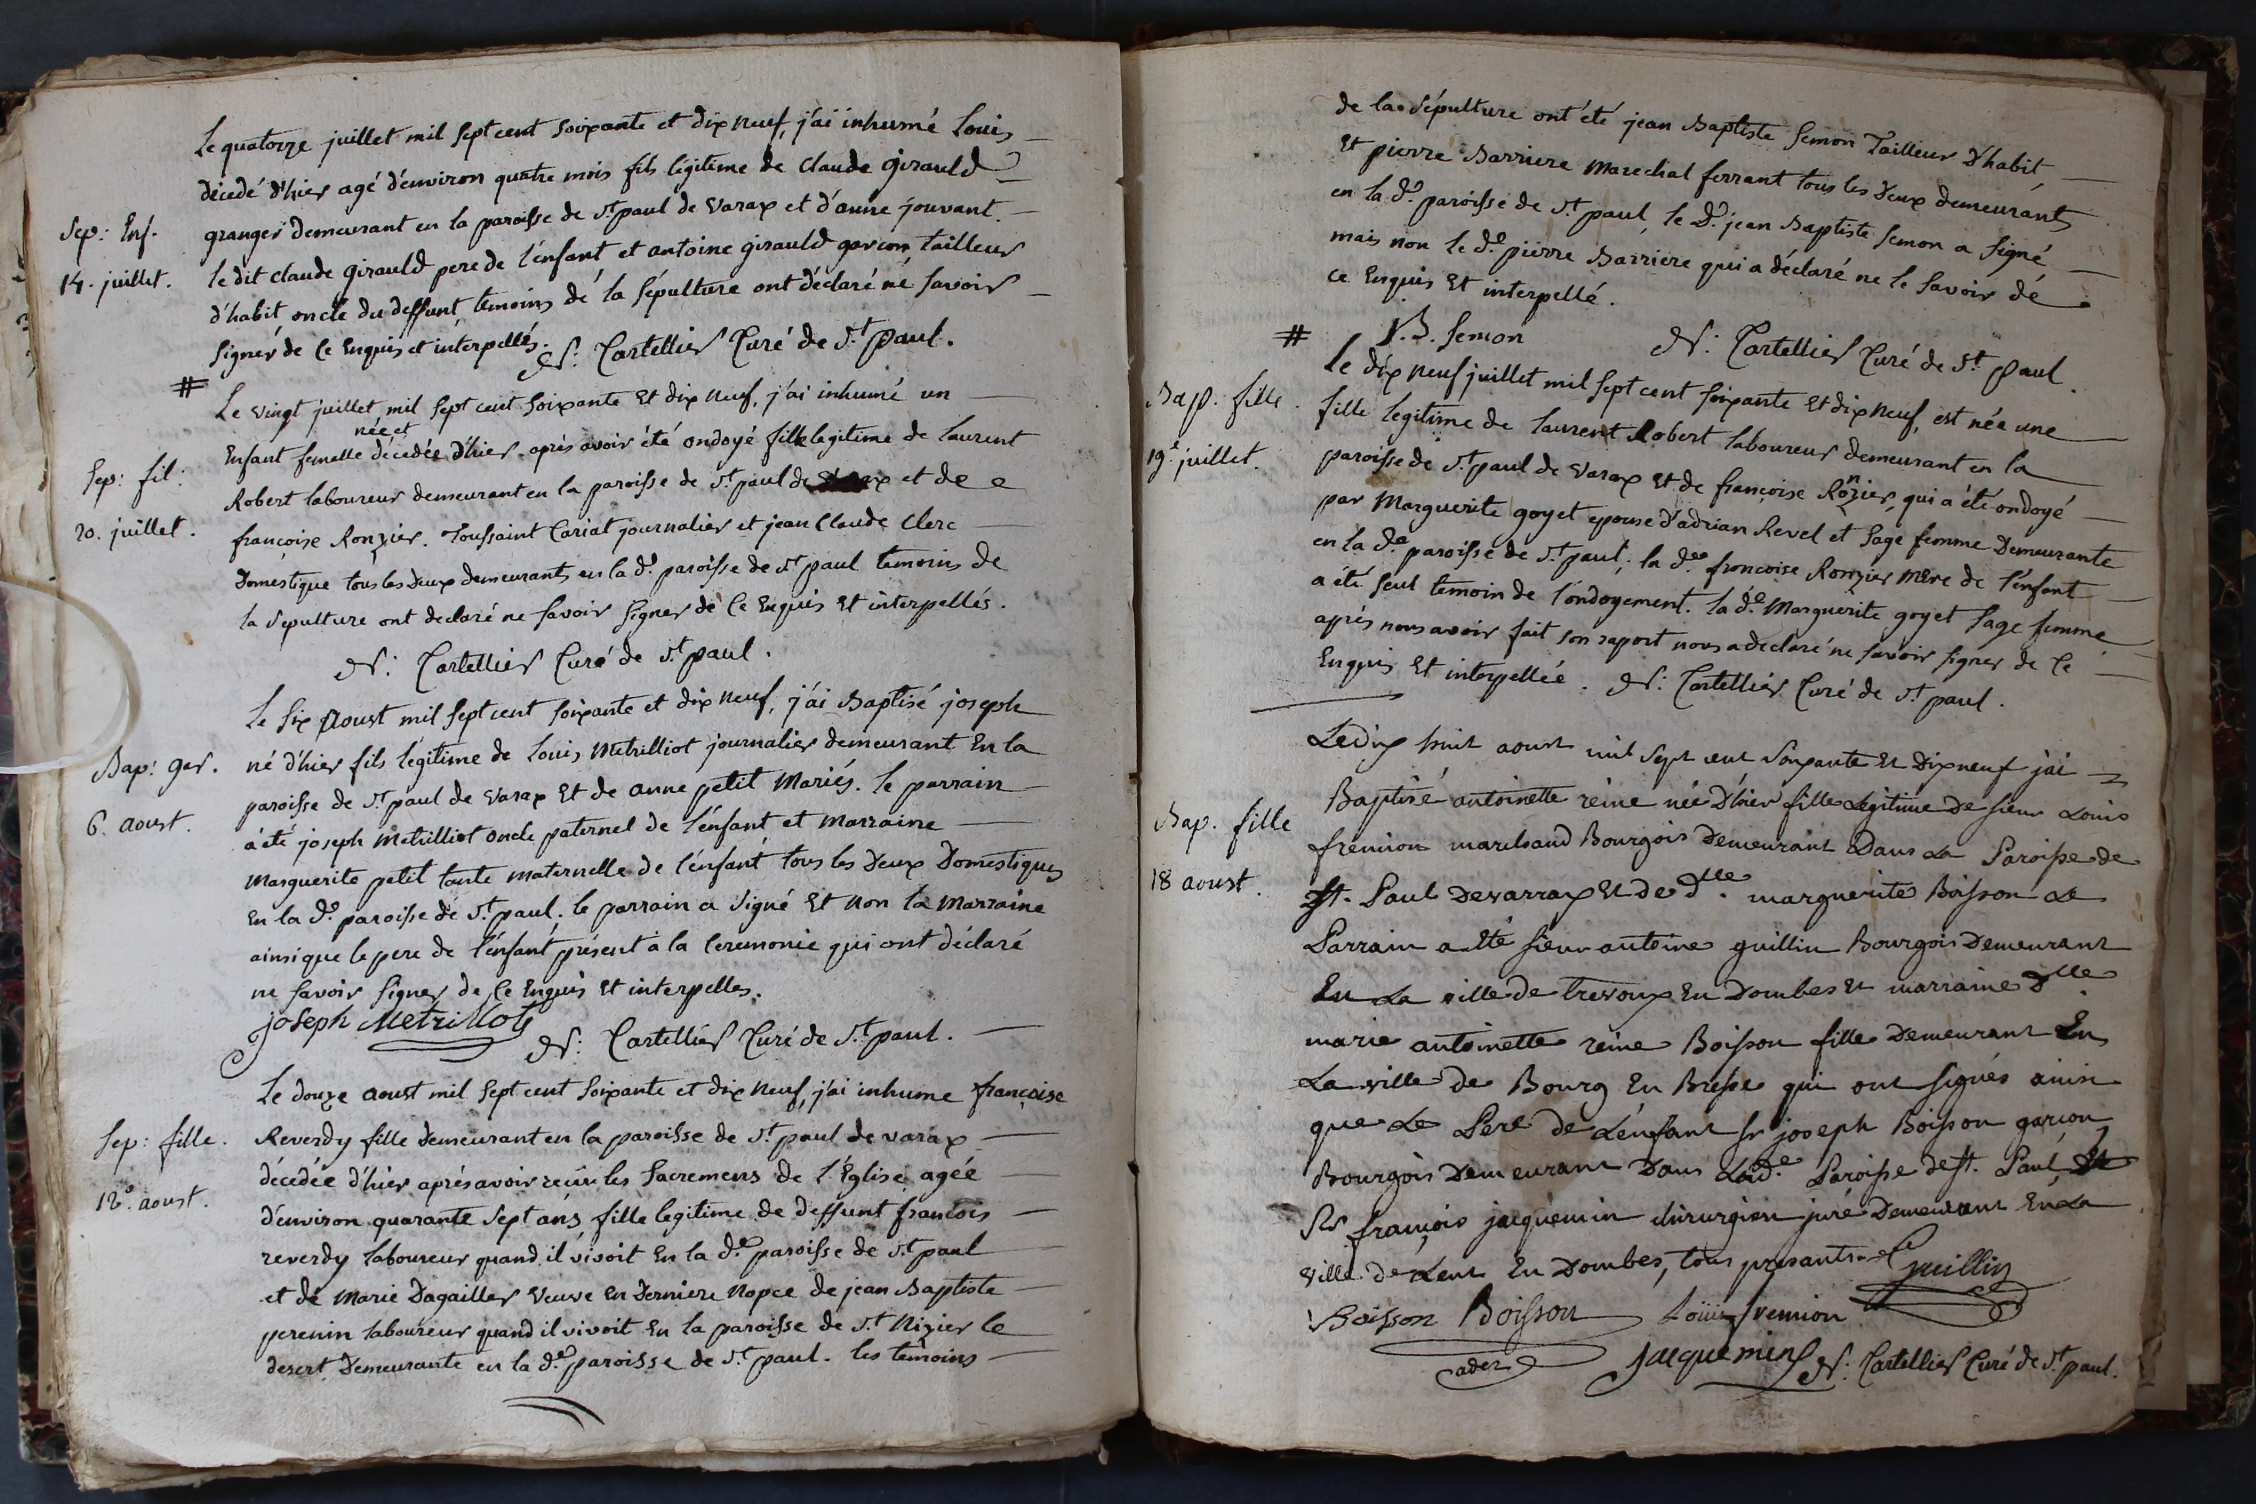 Le quatorze juillet mil sept cent soixante et dix neuf, j'ai inhumé Louis
décedé d'hier agé d'environ quatre mois fils légitime de Claude girauld
Sep: Enf.
granger demeurant en la paroisse de St. paul de Varax et d'anne jouvant.
14. juillet.
le dit claude girauld pere de l'enfant et antoine girauld garcon, tailleur
d'habit oncle du deffunt temoins de la sépulture ont déclaré ne savoir
signer de ce Enquis et interpellés.
N: Cartellier Curé de St. paul.
#
Le vingt juillet mil sept cent soixante Et dix neuf, j'ai inhumé un
née et
Enfant femelle décedée d'hier après avoir été ondoyé fille legitime de laurent
Sep: fil:
Robert laboureur demeurant en la paroisse de St. paul de Varax et de
20. juillet.
francoise Ronzier. Toussaint Cariat journalier et jean Claude Clerc
Domestique tous les deux demeurants en la de. paroisse de St paul temoins de
la sepulture ont declaré ne savoir signer de Ce Enquis Et interpellés.
N: Cartellier Curé de St. paul.
Le six Aoust mil sept cent soixante et dix neuf, j'ai Baptisé joseph
Bap: gar.
né d'hier fils légitime de Louis Metrilliot journalier demeurant En la
paroisse de St. paul de Varax Et de anne petit Mariés. le parrain
6. aoust.
a été joseph Metrilliot oncle paternel de l'enfant et Marraine
Marguerite petit tante maternelle de l'enfant tous les deux Domestiques
En la de. paroisse de St. paul. le parrain a signé Et non la Marraine
ainsi que le pere de l'enfant présent à la Ceremonie qui ont déclaré
ne savoir signer de Ce Enquis Et interpelles.
joseph Metrillot
N: Cartellier Curé de St. paul.
Le douze aoust mil sept cent soixante et dix neuf, j'ai inhume françoise
Sep: fille.
Reverdy fille demeurant en la paroisse de St. paul de varax
décédée d'hier après avoir reçu les sacremens de l'Eglise agée
12e. aoust.
d'environ quarante sept ans fille legitime de deffunt francois
reverdy laboureur quand il vivoit En la de. paroisse de St. paul
et de Marie Dagailler Veuve En Derniere Nopce de jean Baptiste
perenin laboureur quand il vivoit En la paroisse de St. Nizier le
desert Demeurante en la de. paroisse de St. paul. les temoins
de la sépulture ont été jean Baptiste Semon Tailleur d'habit
Et pierre Barriere Marechal ferrant tous les deux demeurants
en la de. paroisse de St. paul, le d. jean Baptiste Semon a signé
mais non le d. pierre Barriere qui a déclaré ne le savoir de
ce Enquis Et interpellé.
J.B. Semon
N: Cartellier Curé de St. paul
#
Le dix neuf juillet mil sept cent soixante Et dix neuf, est née une
Bap. fille.
fille legitime de laurent Robert laboureur demeurant en la
19e juillet.
paroisse de St. paul de Varax Et de françoise Ronzier, qui a été ondoyé
par Marguerite goyet epouse d'adrian Revel et sage femme Demeurante
en la de. paroisse de St. paul; la de. francoise Ronzier mere de l'enfant
a été seul temoin de l'ondoyement. la de. Marguerite goyet sage femme
après nous avoir fait son raport nous a declaré ne savoir signer de Ce
Enquis Et interpellée. N: Cartellier Curé de St. paul.
Le dix huit aoust mil sept cent soixante Et Dix neuf j'ai
Baptisé antoinette reine née d'hier fille legitime de sieur Louis
Bap. fille
fremion marchand Bourgois Demeurant Dans La Paroisse de
18 aoust.
St. Paul de varrax Et de dlle. marguerite Boisson Le
Parrain a été sieur antoine guillin Bourgois Demeurant
En La ville de trevoux En Dombes Et marraine dlle
marie antoinette reine Boisson fille Demeurant En
La ville de Bourg En Bresse qui ont signés ainsi
que Le Pere de L'enfant sr joseph Boisson garçon
Bourgois Demeurant Dans Lade. Paroisse de St. Paul, Et
Sr françois jacquemin chirurgien juré Demeurant En La
ville de Lent En Dombes, tous presants
guillin
Boisson Boisson Louis fremion
ader jacquemin N: Cartellier Curé de St. paul.